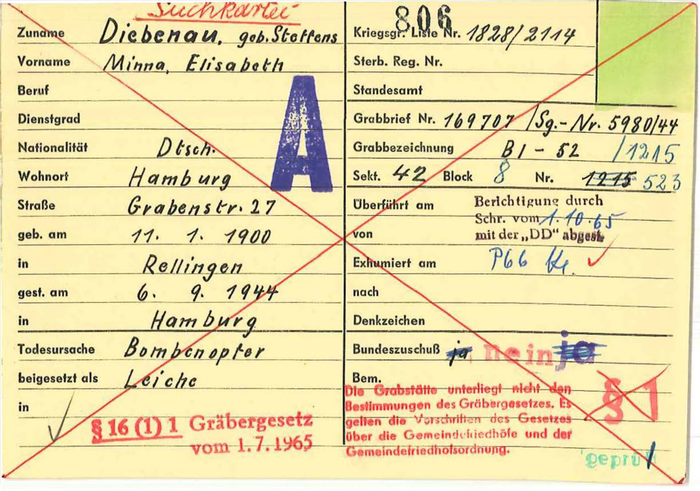 Suchkartei
806
Zuname Diebenau, geb. Steffens
Vorname Minna, Elisabeth
Beruf
Dienstgrad
A
Nationalität Dtsch.
Wohnort Hamburg
Straße Grabenstr. 27
geb. am 11. 1. 1900
in Rellingen
gest. am 6. 9. 1944
in Hamburg
Todesursache Bombenopfer
beigesetzt als Leiche
in
§ 16 (1) 1 Gräbergesetz
vom 1.7.1965
Kriegsgr. Liste Nr. 1828/2114
Sterb. Reg. Nr.
Standesamt
Grabbrief Nr. 169707 /Sg.-Nr. 5980/44
Grabbezeichnung BI - 52 /1215
Sekt. 42 Block 8 Nr. 1215 523
Überführt am
Berichtigung durch
Schr. vom 1.10.65
mit der „DD" abgest.
von
Exhumiert am P66
nach
Denkzeichen
Bundeszuschuß ja nein ja
Bem.
Die Grabstätte unterliegt nicht den
Bestimmungen des Gräbergesetzes. Es
gelten die Vorschriften des Gesetzes
über die Gemeindefriedhöfe und der
Gemeindefriedhofsordnung.
§ 1
geprüft